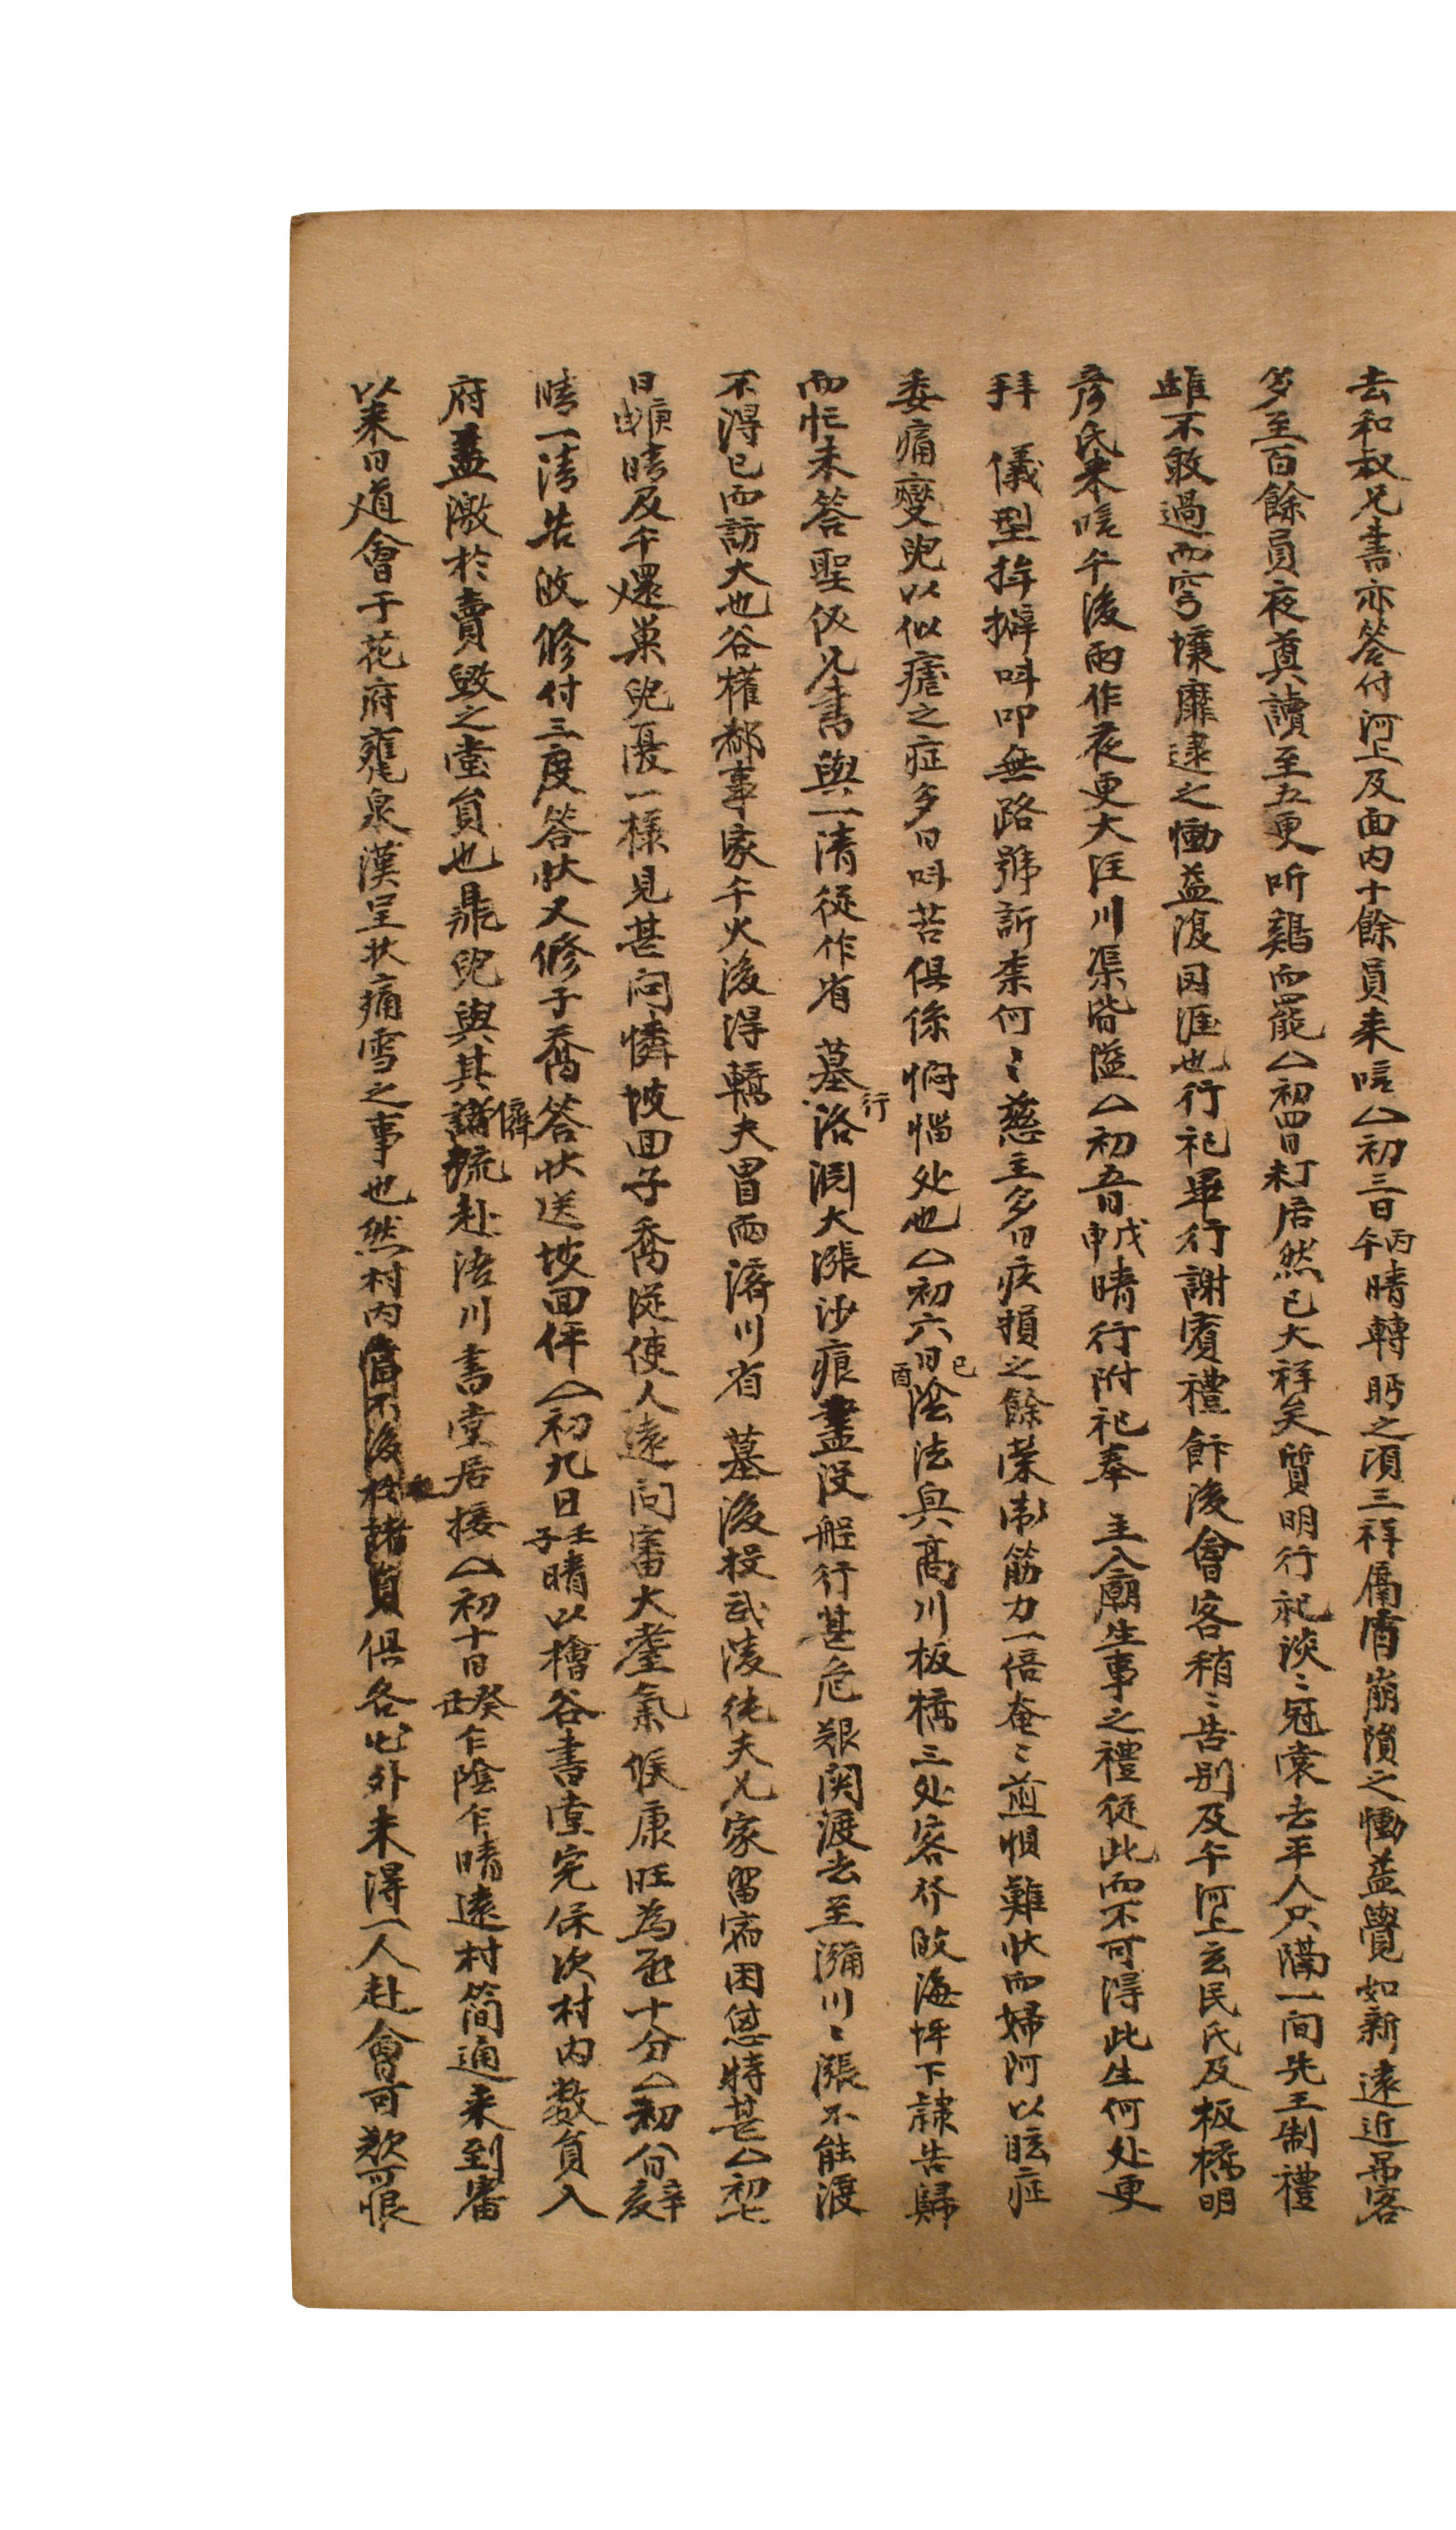 去和叔兄書亦答付河上及面内十餘員来唁△初三日丙午晴轉眄之頃三祥倐届崩隕之慟益覺如新遠近吊客
多至百餘員夜奠讀至五更听鷄而罷△初四日丁未居然已大祥矣質明行祀淡〻冠裳去平人只隔一間先王制禮
雖不敢過而穹壤靡逮之慟益復罔涯也行祀畢行謝賓禮餙後會客稍〻告别及午河上玄民氏及板橋明
彦氏来唁午後雨作夜更大注川渠皆溢△初五日戊申晴行附祀奉 主入廟生事之禮從此而不可得此生何处更
拜 儀型摧擗呌叩無路號訴柰何〻慈主多日疾損之餘榮衛筋力一倍奄〻煎惧難狀而婦阿以眩症
委痛夔兒以似瘧之症多日呌苦俱係悯惱处也△初六日己酉陰法興高川板橋三处客發皈海坪下隷告歸
而忙未答聖伋兄書與一清從作省 墓行洛淵大漲沙痕盡沒船行甚危艱関渡去至濔川〻漲不能渡
不得已而訪大也谷權都事家午火後得轎夫冒雨済川省 墓後投武陵純夫兄家留宿困憊特甚△初七
日庚戌晴及午還巢兒憂一樣見甚问憐坡回子喬従使人遠问審大耋氣候康旺為慰十分△初八日辛亥
晴一清告皈修付三度答狀又修子喬答狀送坡回伻△初九日壬子晴以檜谷書堂完保次村内数員入
府盖激於賣毀之堂員也鼎兒與其儕流赴浯川書堂居接△初十日癸丑乍陰乍晴遠村简通来到審
以来日道會于花府甕泉漢呈狀痛雪之事也然村内俱各心外未得一人赴會可歎可恨